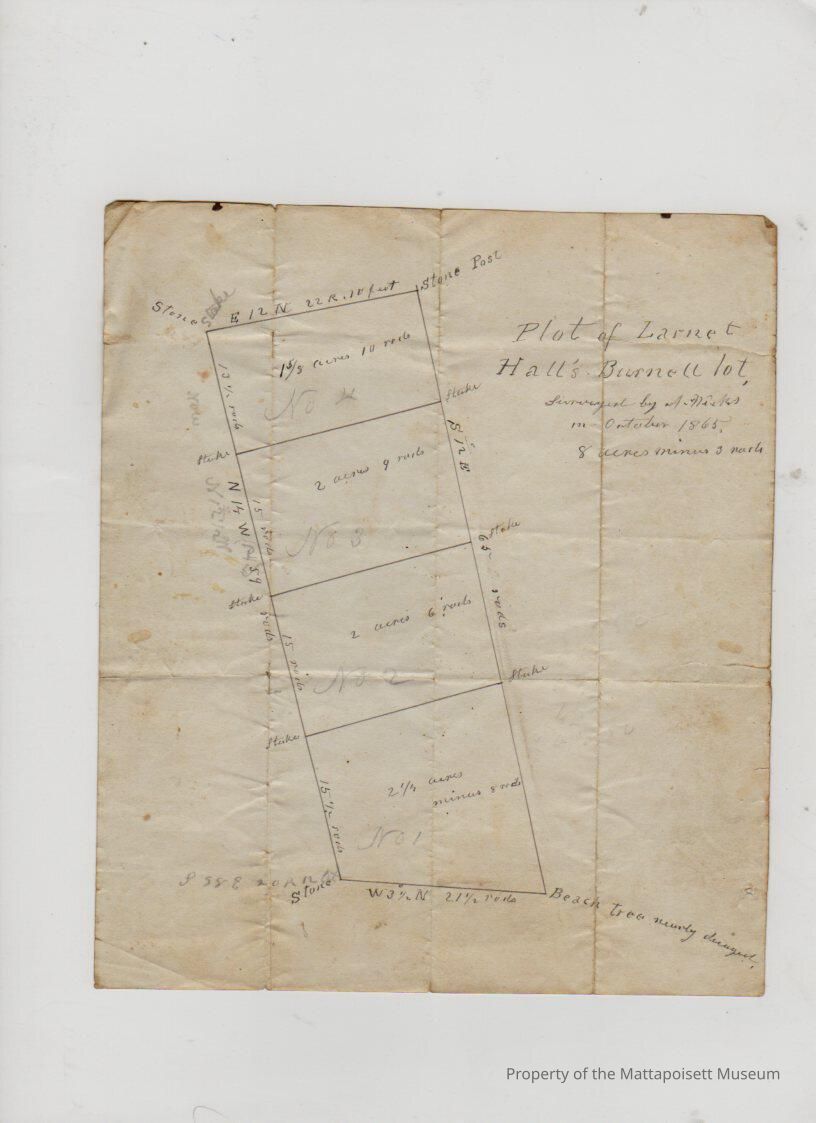 Plot of Larnet
Hall's Burnell lot,
Surveyed by N. Hicks
in October 1865,
8 acres minus 3 rods
Stone Stake
E 12 N 22 R. 10 feet
Stone Post
1 5/8 acres 10 rods
13 1/2 rods
No 4
Stake
Stake
S 12 E
2 acres 9 rods
N 14 W
15 rods
No 3
Stake
65 rods
59 rods
Stake
2 acres 6 rods
15 rods
No 2
Stake
Stake
2 1/4 acres
minus 8 rods
15 1/2 rods
No 1
Stone
W 3 1/2 N 21 1/2 rods
Beach tree nearly decayed,
Property of the Mattapoisett Museum